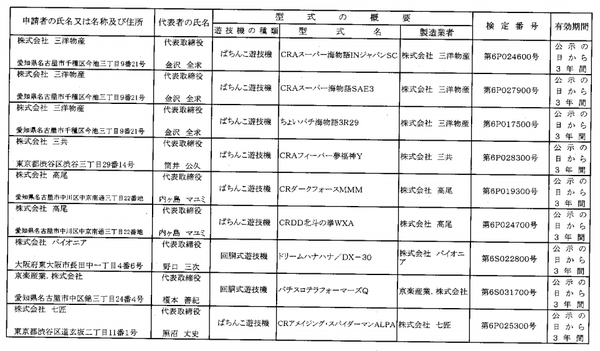 申請者の氏名又は名称及び住所 代表者の氏名 型式の概要 検定番号 有効期間
遊技機の種類 型式名 製造業者
株式会社 三洋物産 代表取締役 ぱちんこ遊技機 CRAスーパー海物語INジャパンSC 株式会社 三洋物産 第6P024600号 公示の日から3年間
愛知県名古屋市千種区今池三丁目9番21号 金沢 全求
株式会社 三洋物産 代表取締役 ぱちんこ遊技機 CRAスーパー海物語SAE3 株式会社 三洋物産 第6P027900号 公示の日から3年間
愛知県名古屋市千種区今池三丁目9番21号 金沢 全求
株式会社 三洋物産 代表取締役 ぱちんこ遊技機 ちょいパチ海物語3R29 株式会社 三洋物産 第6P017500号 公示の日から3年間
愛知県名古屋市千種区今池三丁目9番21号 金沢 全求
株式会社 三共 代表取締役 ぱちんこ遊技機 CRAフィーバー夢福神Y 株式会社 三共 第6P028300号 公示の日から3年間
東京都渋谷区渋谷三丁目29番14号 筒井 公久
株式会社 高尾 代表取締役 ぱちんこ遊技機 CRダークフォースMMM 株式会社 高尾 第6P019300号 公示の日から3年間
愛知県名古屋市中川区中京南通三丁目22番地 内ヶ島 マユミ
株式会社 高尾 代表取締役 ぱちんこ遊技機 CRDD北斗の拳WXA 株式会社 高尾 第6P024700号 公示の日から3年間
愛知県名古屋市中川区中京南通三丁目22番地 内ヶ島 マユミ
株式会社 パイオニア 代表取締役 回胴式遊技機 ドリームハナハナ/DX-30 株式会社 パイオニア 第6S022800号 公示の日から3年間
大阪府東大阪市長田中一丁目4番6号 野口 三次
京楽産業.株式会社 代表取締役 回胴式遊技機 パチスロテラフォーマーズQ 京楽産業.株式会社 第6S031700号 公示の日から3年間
愛知県名古屋市中区錦三丁目24番4号 榎本 善紀
株式会社 七匠 代表取締役 ぱちんこ遊技機 CRアメイジング・スパイダーマンALPA 株式会社 七匠 第6P025300号 公示の日から3年間
東京都渋谷区道玄坂二丁目11番1号 照沼 丈史